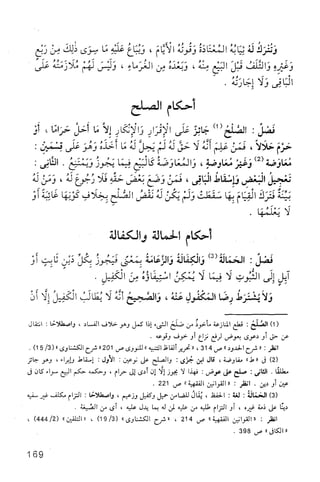 وَتُتْرَكُ لَهُ ثِيَابُهُ الْمُعْتَادَةُ وَقُوتُهُ الْأَيَّامَ ، وَيُبَاعُ عَلَيْهِ مَا سِوَى ذَلِكَ مِنْ رَبْعٍ
وَغَيْرِهِ وَالتَّلَفُ قَبْلَ الْبَيْعِ مِنْهُ ، وَبَعْدَهُ مِنَ الْغُرَمَاءِ ، وَلَيْسَ لَهُمْ مُلَازَمَتُهُ عَلَى
الْبَاقِي وَلَا إِجَارَتُهُ .
أحكام الصلح
فَصْلٌ : الصُّلْحُ (1) جَائِزٌ عَلَى الْإِقْرَارِ وَالْإِنْكَارِ إِلَّا مَا أَحَلَّ حَرَامًا ، أَوْ
حَرَّمَ حَلَالًا ، فَمَنْ عَلِمَ أَنَّهُ لَا حَقَّ لَهُ لَمْ يَحِلَّ لَهُ مَا أَخَذَهُ وَهُوَ عَلَى قِسْمَيْنِ :
مُعَاوَضَةٍ (2) وَغَيْرِ مُعَاوَضَةٍ ، وَالْمُعَاوَضَةُ كَالْبَيْعِ فِيمَا يَجُوزُ وَيَمْتَنِعُ . الثَّانِي :
تَعْجِيلُ الْبَعْضِ وَإِسْقَاطُ الْبَاقِي ، فَمَنْ وَضَعَ بَعْضَ حَقِّهِ فَلَا رُجُوعَ لَهُ ، وَمَنْ لَهُ
بَيِّنَةٌ فَتَرَكَ الْقِيَامَ بِهَا سَقَطَتْ وَلَمْ يَكُنْ لَهُ نَقْضُ الصُّلْحِ بِخِلَافِ كَوْنِهَا غَائِبَةً أَوْ
لَا يَعْلَمُهَا .
أحكام الحمالة والكفالة
فَصْلٌ : الْحَمَالَةُ (3) وَالْكَفَالَةُ وَالزَّعَامَةُ بِمَعْنًى فَيَجُوزُ بِكُلِّ دَيْنٍ ثَابِتٍ أَوْ
آيِلٍ إِلَى الثُّبُوتِ لَا فِيمَا لَا يُمْكِنُ اسْتِيفَاؤُهُ مِنَ الْكَفِيلِ .
وَلَا يُشْتَرَطُ رِضَا الْمَكْفُولِ عَنْهُ ، وَالصَّحِيحُ أَنَّهُ لَا يُطَالَبُ الْكَفِيلُ إِلَّا أَنْ
(1) الصُّلْحُ : قطع المنازعة مأخوذ من صَلَحَ الشيء إذا كمل وهو خلاف الفساد ، واصطلاحًا : انتقال
عن حق أو دعوى بعوض لرفع نزاع أو خوف وقوعه .
انظر : « شرح الحدود » ص 314 ، « تحرير ألفاظ التنبيه » للنووي ص 201 « شرح الكشناوي » (15/3) .
(2) في « ط » مفاوضة ، قال ابن جُزَي : والصلح على نوعين : الأول : إسقاط وإبراء ، وهو جائز
مطلقًا . الثاني : صلح على عوض : فهذا لا يجوز إلَّا إن أدى إلى حرام ، وحكمه حكم البيع سواء كان في
عين أو دين . انظر : « القوانين الفقهية » ص 221 .
(3) الْحَمَالَةُ : لغة : الحفظ ، يُقَالُ للضامن حميل وكفيل وزعيم ، واصطلاحًا : التزام مكلف غير سفيه
دينًا على ذمة غيره ، أو التزام طلبه من عليه لمن له بما يدل عليه ، أي من الصِّيغة .
انظر : « القوانين الفقهية » ص 214 ، « شرح الكشناوي » (19/3) ، « التلقين » (444/2) ،
« الكافي » ص 398 .
169